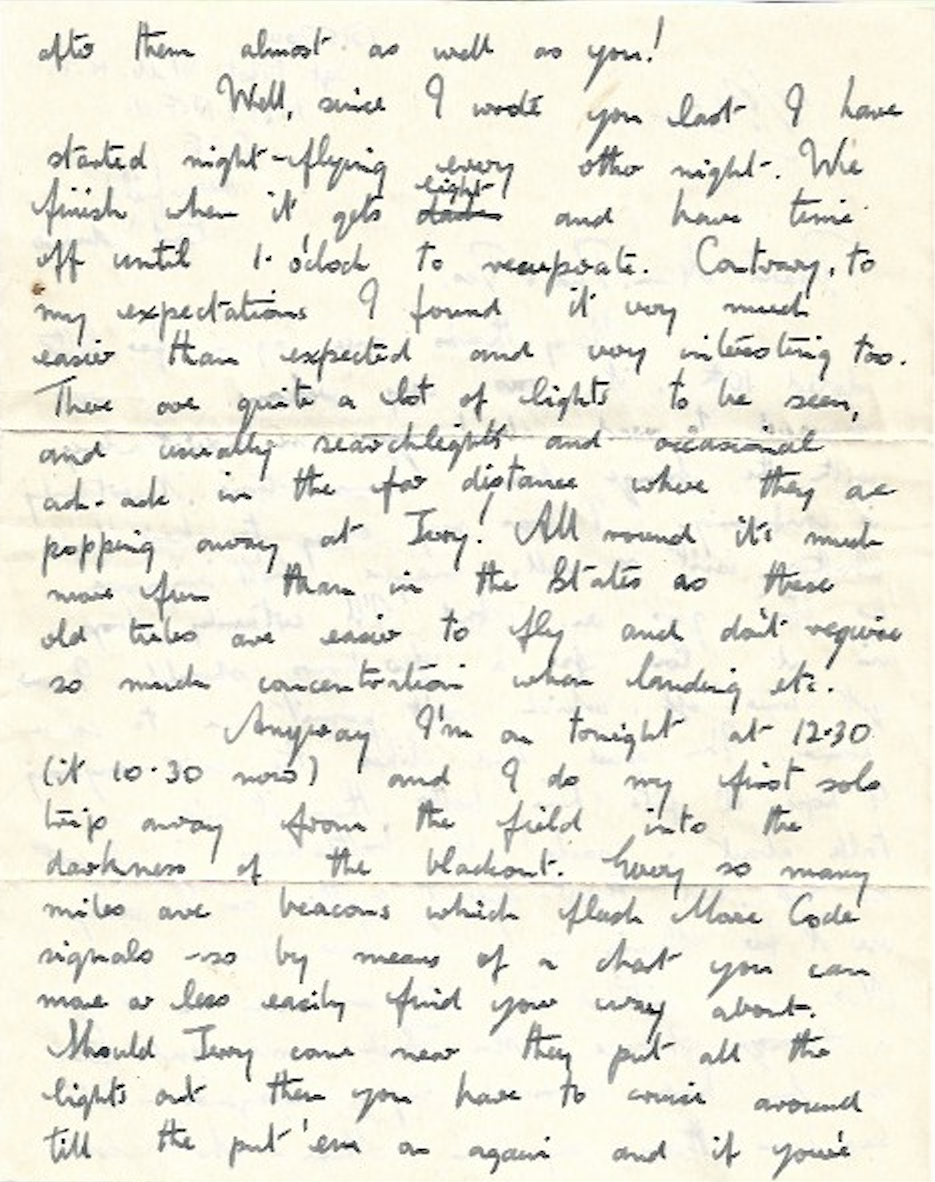 after them almost as well as you!
Well, since I wrote you last I have
started night-flying every other night. We
finish when it gets dark light and have time
off until 1. o'clock to recuperate. Contrary, to
my expectations I found it very much
easier than expected and very interesting too.
There are quite a lot of lights to be seen,
and usually searchlights and occasional
ack-ack. in the far distance where they are
popping away at Jerry! All round it's much
more fun than in the States as these
old tubs are easier to fly and don't require
so much concentration when landing etc.
Anyway I'm on tonight at 12.30
(it 10.30 now) and I do my first solo
trip away from the field into the
darkness of the blackout. Every so many
miles are beacons which flash Morse Code
signals - so by means of a chart you can
more or less easily find your way about.
Should Jerry come near they put all the
lights out then you have to cruise around
till the put 'em on again and if you're